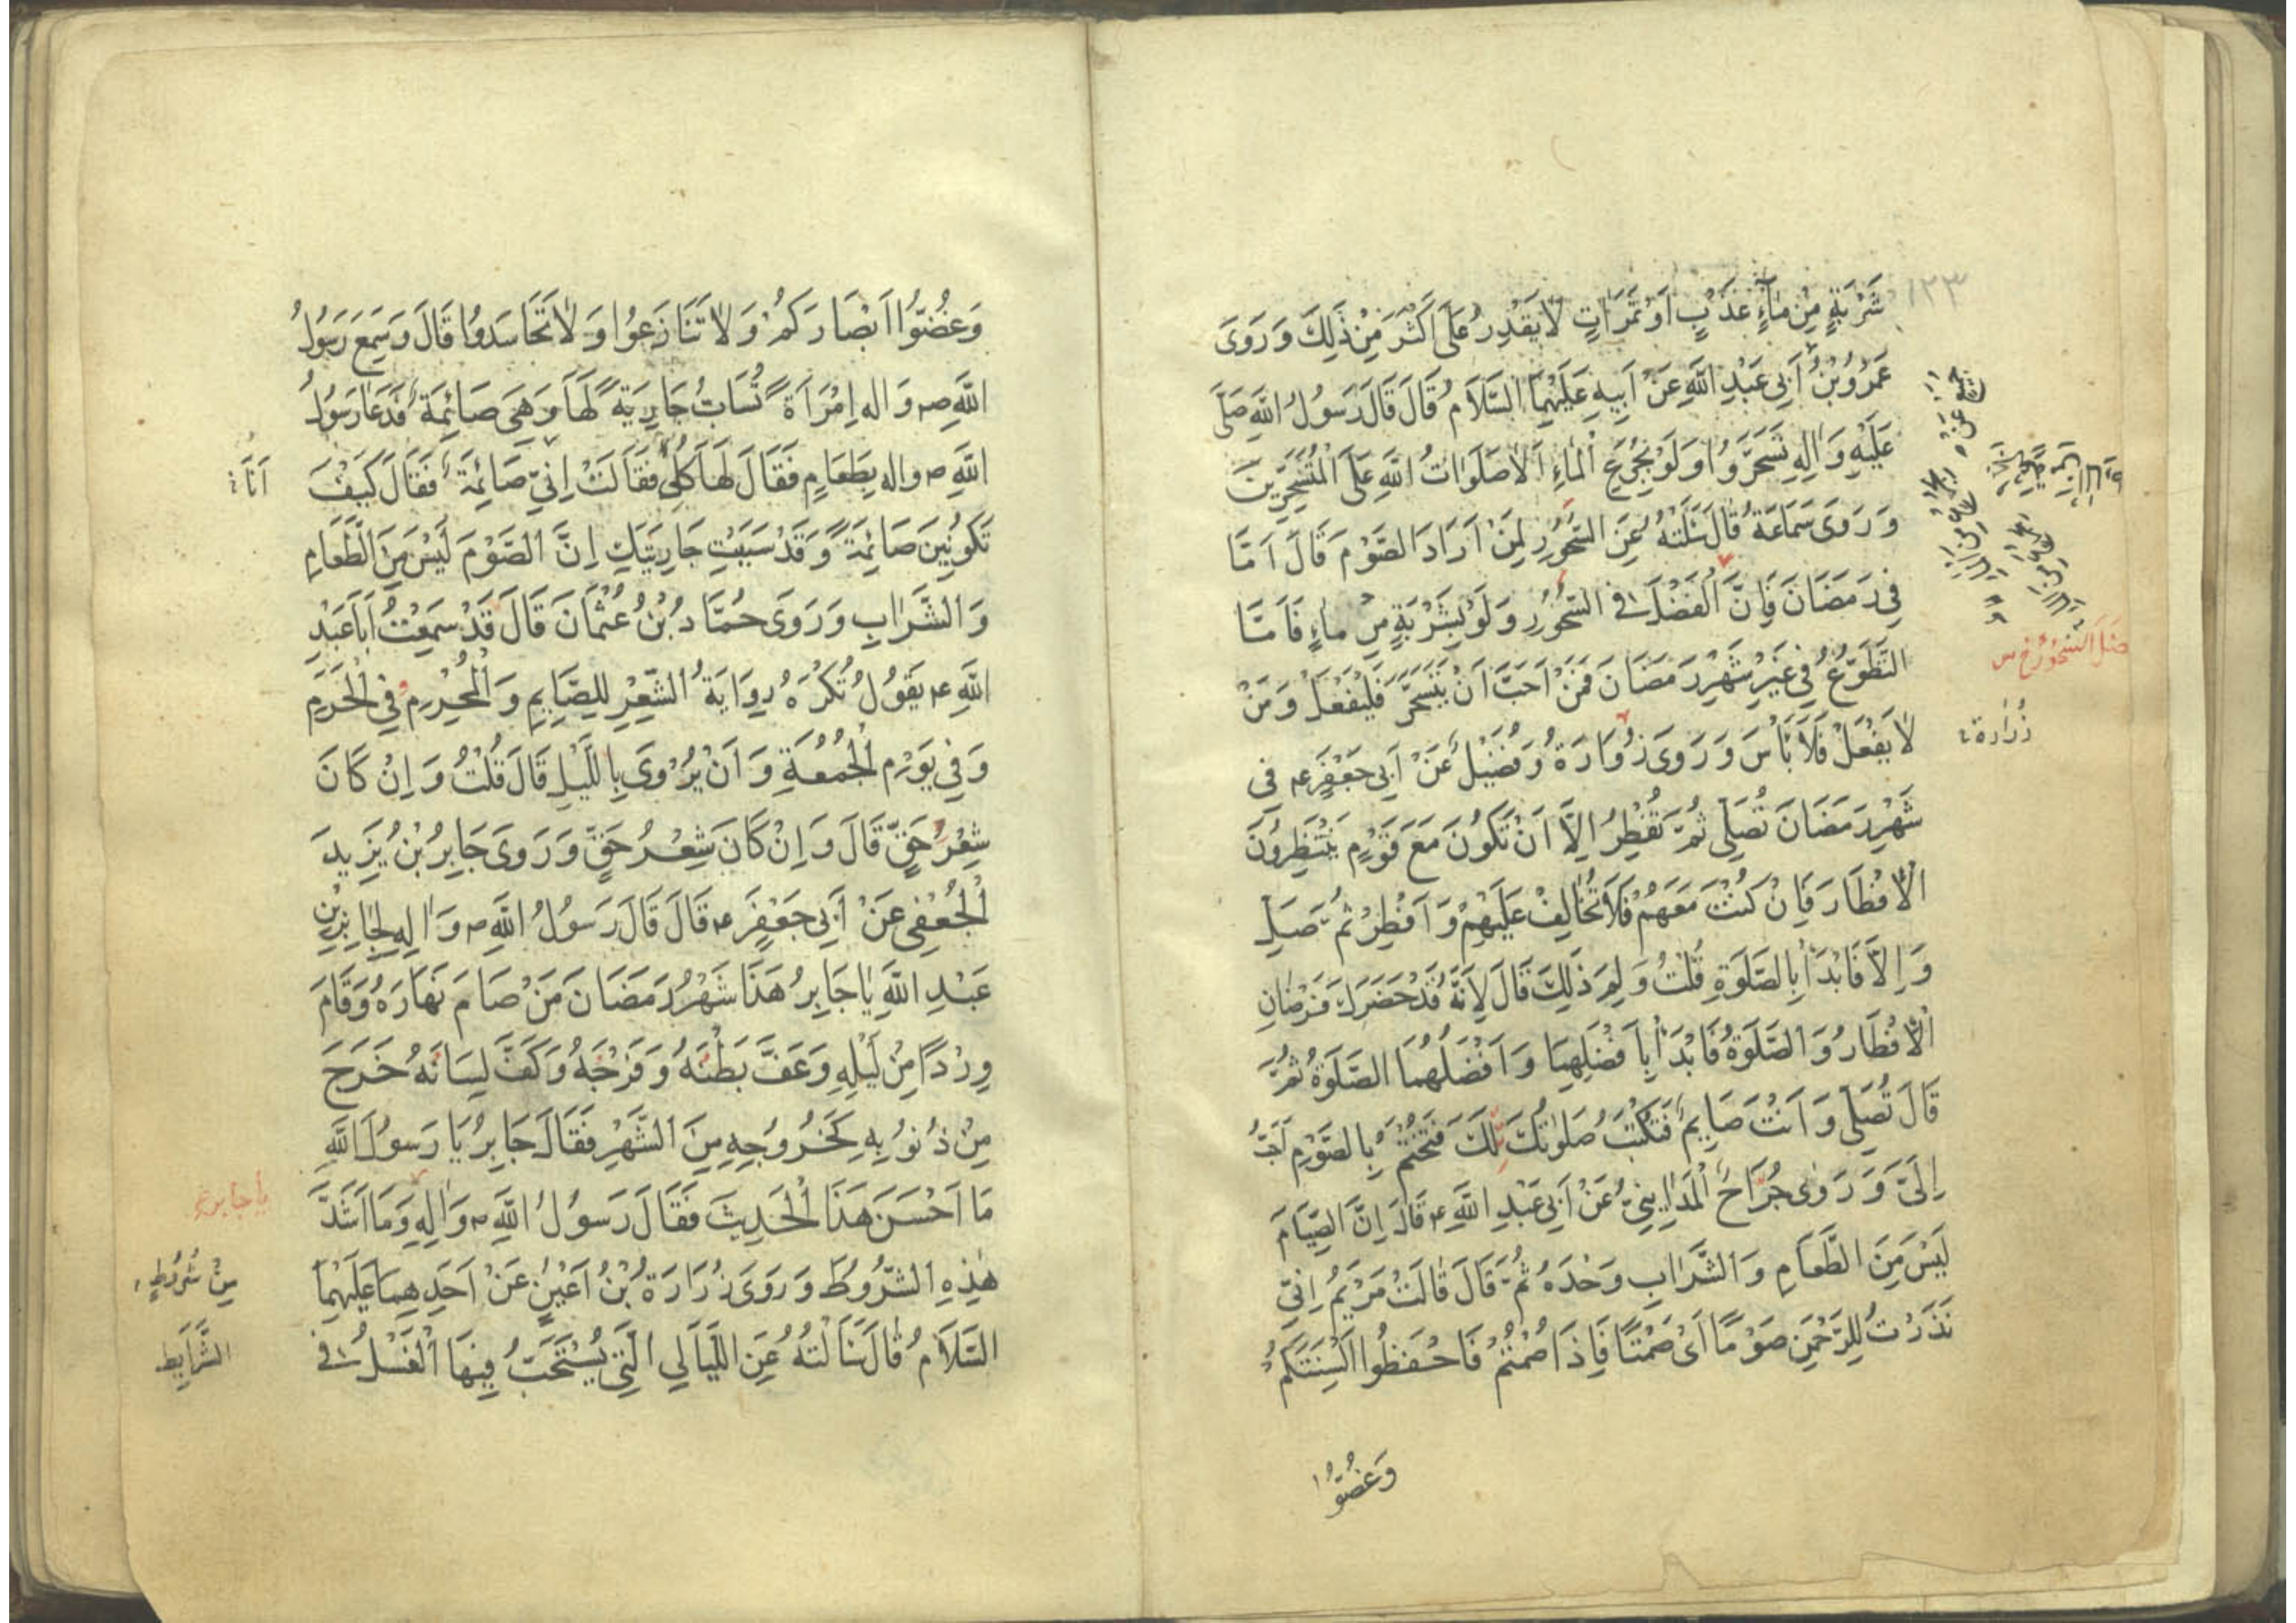 ١٢٣
شَرْبَةٍ مِنْ مٰاءٍ عَذْبٍ اَوْ تَمَرٰاتٍ لٰا يَقْدِرُ عَلَى اَكْثَرَ مِنْ ذٰلِكَ وَ رَوَى
عَمْرُو بْنُ اَبِي عَبْدِ اللّٰهِ عَنْ اَبِيهِ عَلَيْهِمَا السَّلَامُ قَالَ قَالَ رَسُولُ اللّٰهِ صَلَّى
عَلَيْهِ وَ اٰلِهِ تَسَحَّرُوا وَ لَوْ بِجُرَعِ الْمٰاءِ اَلٰا صَلَوٰاتُ اللّٰهِ عَلَى الْمُتَسَحِّرِينَ
وَ رَوَى سَمَاعَةُ قَالَ سَئَلْتُهُ عَنِ السُّحُورِ لِمَنْ اَرَادَ الصَّوْمَ قَالَ اَمَّا
فِي رَمَضَانَ فَاِنَّ الْفَضْلَ فِي السُّحُورِ وَ لَوْ بِشَرْبَةٍ مِنْ مٰاءٍ فَاَمَّا
التَّطَوُّعُ فِي غَيْرِ شَهْرِ رَمَضَانَ فَمَنْ اَحَبَّ اَنْ يَتَسَحَّرَ فَلْيَفْعَلْ وَ مَنْ
لٰا يَفْعَلْ فَلَا بَاْسَ وَ رَوَى زُرَارَةُ وَ فُضَيْلٌ عَنْ اَبِي جَعْفَرٍ ع فِي
زُرَارَةَ
شَهْرِ رَمَضَانَ تُصَلِّي ثُمَّ تُفْطِرُ اِلَّا اَنْ تَكُونَ مَعَ قَوْمٍ يَنْتَظِرُونَ
الْاِفْطَارَ فَاِنْ كُنْتَ مَعَهُمْ فَلَا تُخَالِفْ عَلَيْهِمْ وَ اَفْطِرْ ثُمَّ صَلِّ
وَ اِلَّا فَابْدَاْ بِالصَّلٰوةِ قُلْتُ وَ لِمَ ذٰلِكَ قَالَ لِاَنَّهُ قَدْ حَضَرَكَ فَرْضَانِ
الْاِفْطَارُ وَ الصَّلٰوةُ فَابْدَاْ بِاَفْضَلِهِمَا وَ اَفْضَلُهُمَا الصَّلٰوةُ ثُمَّ
قَالَ تُصَلِّي وَ اَنْتَ صَايِمٌ فَتُكْتَبُ صَلٰوتُكَ تِلْكَ فَتُخْتَمُ بِالصَّوْمِ اَحَبُّ
اِلَيَّ وَ رَوٰى جَرَّاحُ الْمَدَايِنِيُّ عَنْ اَبِي عَبْدِ اللّٰهِ ع قَالَ اِنَّ الصِّيَامَ
لَيْسَ مِنَ الطَّعَامِ وَ الشَّرَابِ وَحْدَهُ ثُمَّ قَالَ قَالَتْ مَرْيَمُ اِنِّي
نَذَرْتُ لِلرَّحْمٰنِ صَوْمًا اَيْ صَمْتًا فَاِذَا صُمْتُمْ فَاحْفَظُوا اَلْسِنَتَكُمْ
وَغُضُّوا
وَغُضُّوا اَبْصَارَكُمْ وَ لٰا تَنَازَعُوا وَ لٰا تَحَاسَدُوا قَالَ وَ سَمِعَ رَسُولُ
اللّٰهِ ص وَ اله اِمْرَاَةً تُسَابُّ جَارِيَةً لَهَا وَ هِيَ صَائِمَةٌ فَدَعَا رَسُولُ
اللّٰهِ ص واله بِطَعَامٍ فَقَالَ لَهَا كُلِي فَقَالَتْ اِنِّي صَائِمَةٌ فَقَالَ كَيْفَ
اَنَا
تَكُونِينَ صَائِمَةً وَ قَدْ سَبَبْتِ جَارِيَتَكِ اِنَّ الصَّوْمَ لَيْسَ مِنَ الطَّعَامِ
وَ الشَّرَابِ وَ رَوَى حَمَّادُ بْنُ عُثْمَانَ قَالَ قَدْ سَمِعْتُ اَبَا عَبْدِ
اللّٰهِ ع يَقُولُ تُكْرَهُ رِوَايَةُ الشِّعْرِ لِلصَّايِمِ وَ الْمُحْرِمِ وَ فِي الْحَرَمِ
وَ فِي يَوْمِ الْجُمُعَةِ وَ اَنْ يُرْوٰى بِاللَّيْلِ قَالَ قُلْتُ وَ اِنْ كَانَ
شِعْرُ حَقٍّ قَالَ وَ اِنْ كَانَ شِعْرُ حَقٍّ وَ رَوَى جَابِرُ بْنُ يَزِيدَ
الْجُعْفِي عَنْ اَبِي جَعْفَرٍ ع قَالَ قَالَ رَسُولُ اللّٰهِ ص وَ اٰلِهِ لِجَابِرِ بْنِ
عَبْدِ اللّٰهِ يٰا جَابِرُ هٰذَا شَهْرُ رَمَضَانَ مَنْ صَامَ نَهَارَهُ وَ قَامَ
وِرْدًا مِنْ لَيْلِهِ وَ عَفَّ بَطْنُهُ وَ فَرْجُهُ وَ كَفَّ لِسَانَهُ خَرَجَ
مِنْ ذُنُوبِهِ كَخُرُوجِهِ مِنَ الشَّهْرِ فَقَالَ جَابِرُ يَا رَسُولَ اللّٰهِ
مَا اَحْسَنَ هٰذَا الْحَدِيثَ فَقَالَ رَسُولُ اللّٰهِ ص وَ اٰلِهِ وَ مَا اَشَدَّ
يا جابر
هٰذِهِ الشُّرُوطَ وَ رَوَى زُرَارَةُ بْنُ اَعْيَنَ عَنْ اَحَدِهِمَا عَلَيْهِمَا
مِنْ شُرُوطٍ
السَّلَامُ قَالَ سَاَلْتُهُ عَنِ اللَّيَالِي الَّتِي يُسْتَحَبُّ فِيهَا الْغُسْلُ فِي
الشَّرَايِط